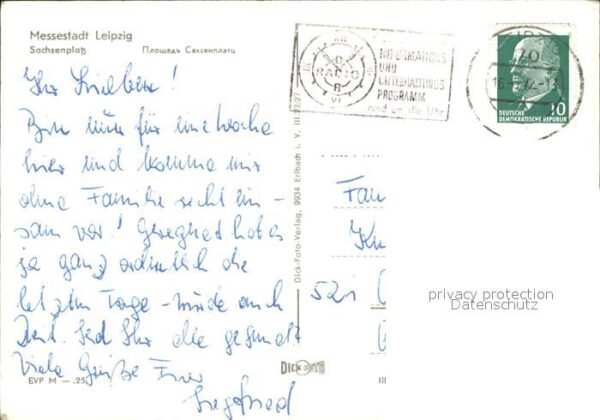 Messestadt Leipzig
Sachsenplatz Площадь Саксенплатц
Ihr Lieben!
Bin nun für eine Woche
hier und komme mir
ohne Familie recht ein-
sam vor! Geregnet hat es
ja ganz ordentlich die
letzten Tage - würde auch
Zeit. Seid Ihr alle gesund?
Viele Grüße Euer
Siegfried
EVP M —.25
Dick-Foto-Verlag, 9934 Erlbach i. V. III
DICK FOTO
III
RADIO
INFORMATIONS
UND
UNTERHALTUNGS
PROGRAMM
rund um die Uhr
70
10
DEUTSCHE
DEMOKRATISCHE REPUBLIK
Fam
521
privacy protection
Datenschutz